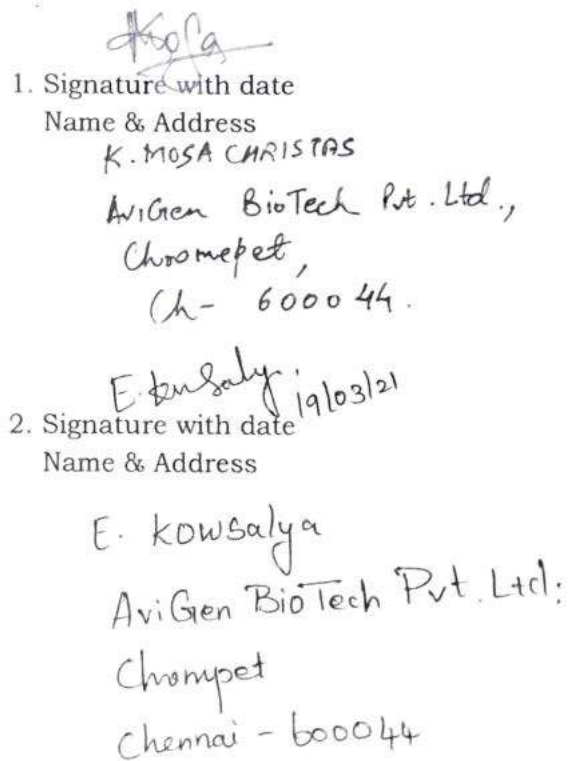 1. Signature with date
Name & Address
K. MOSA CHRISTAS
AviGen BioTech Pvt. Ltd.,
Chromepet,
Ch- 600044.
E. 19/03/21
2. Signature with date
Name & Address
E. Kowsalya
AviGen BioTech Pvt. Ltd.
Chrompet
Chennai - 600044